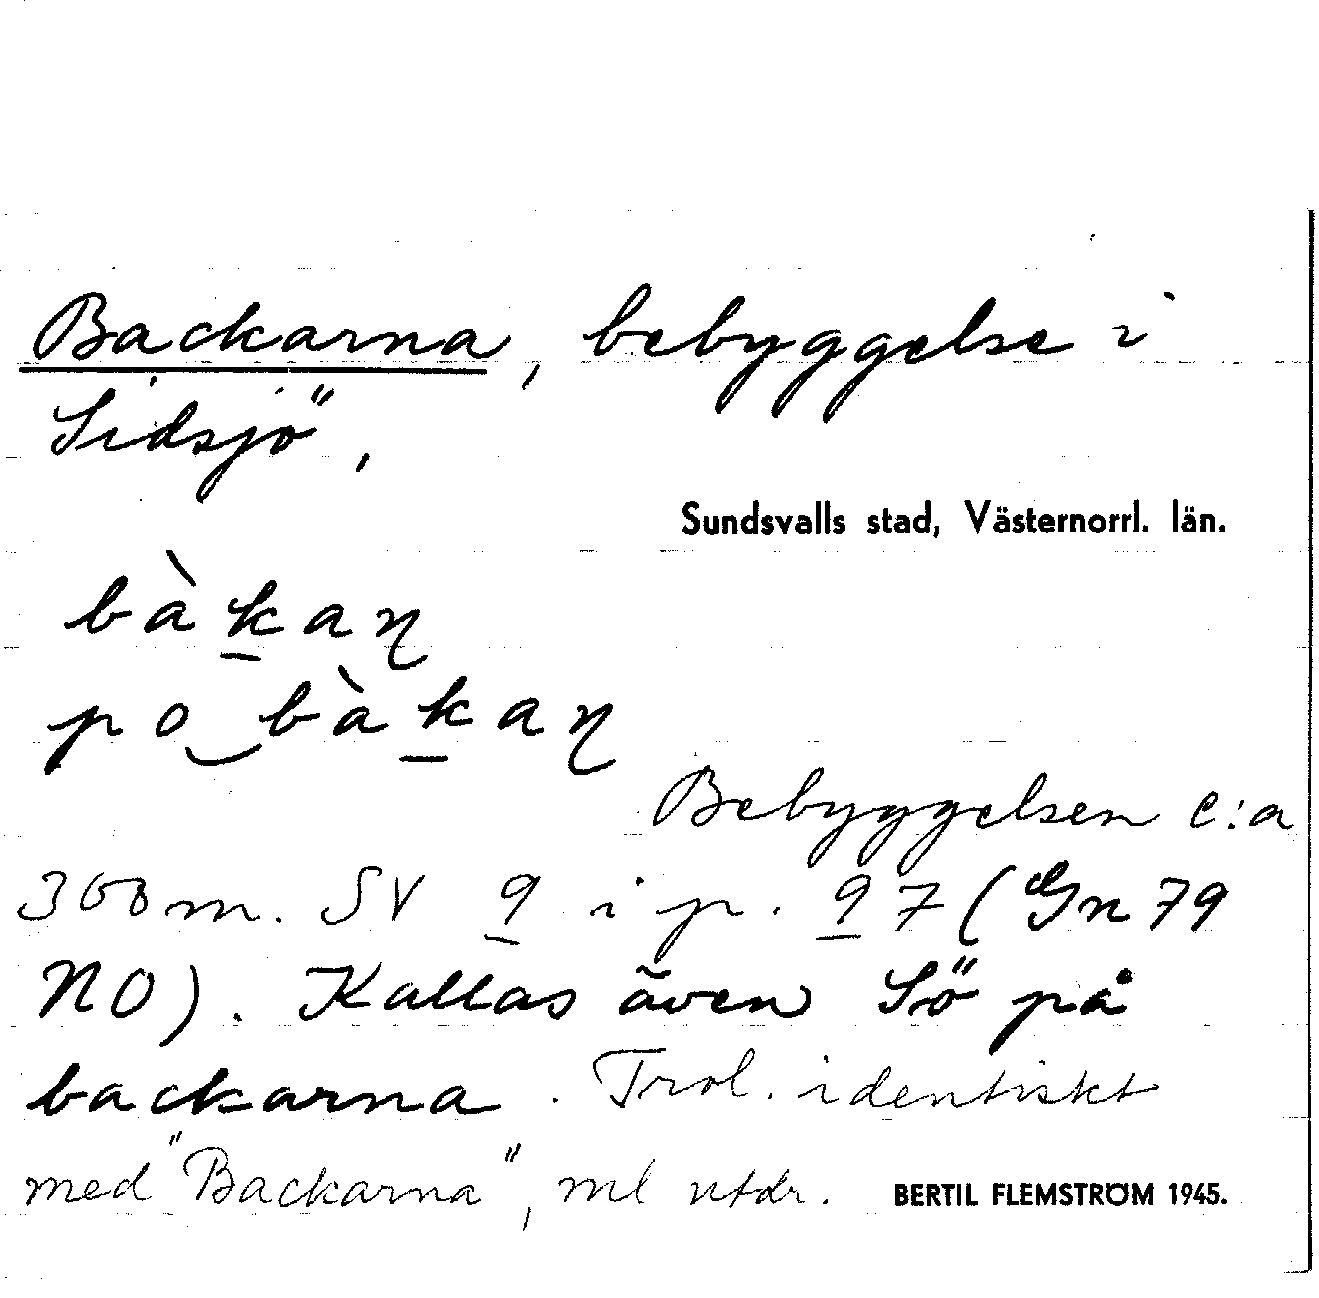 Backarna, bebyggelse i
Sidsjö,
Sundsvalls stad, Västernorrl. län.
bàk̲aɳ
po‿bàk̲aɳ
Bebyggelsen c:a
300 m. SV 9̲ i p. 9̲7 (Gn 79
NO). Kallas även Sö på
backarna. Trol. identiskt
med "Backarna", ml utdr. BERTIL FLEMSTRÖM 1945.